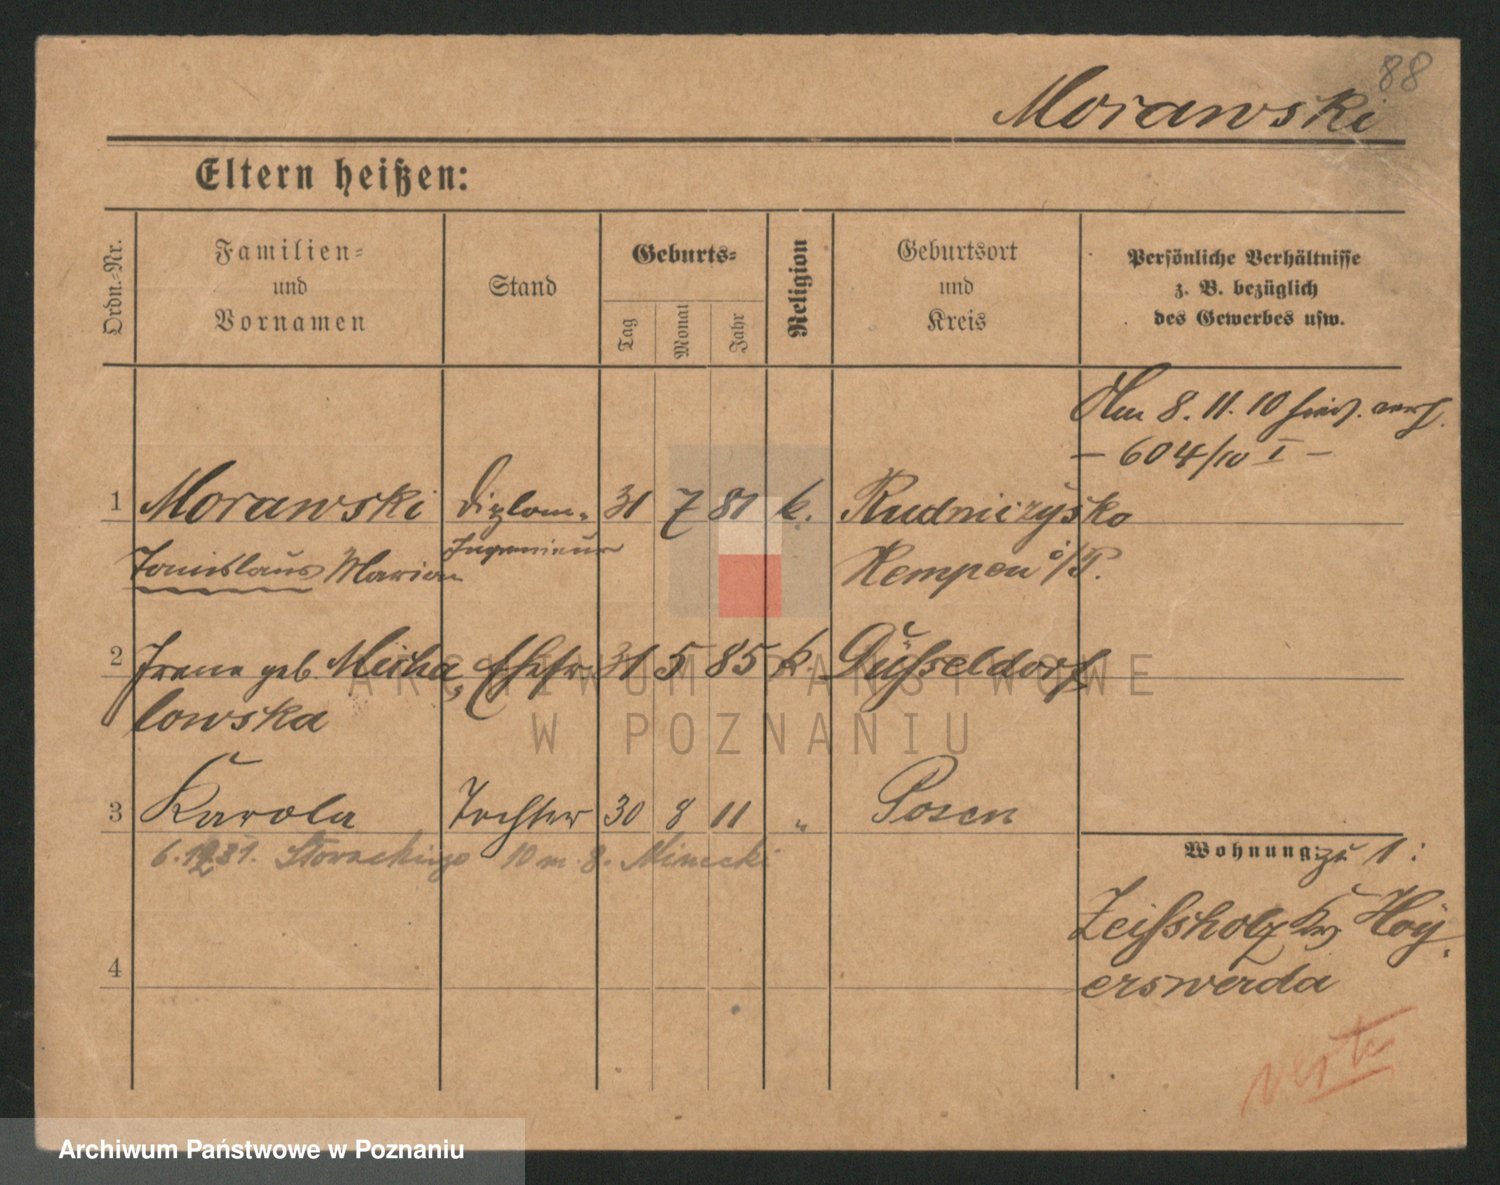 88
Morawski
Eltern heißen:
Ordn.-Nr.
Familien-
und
Vornamen
Stand
Geburts-
Tag
Monat
Jahr
Religion
Geburtsort
und
Kreis
Persönliche Verhältnisse
z. B. bezüglich
des Gewerbes usw.
Am 8. 11. 10
– 604/10 I –
1 Morawski Diplom- 31 7 81 k. Rudniczysko
Stanislaus Marian Ingenieur Kempen i/P.
2 Irene geb. Micha Ehefr. 31 5 85 k. Düsseldorf
lowska
3 Karola Tochter 30 8 11 " Posen
10 m. 8.
Wohnung: zu 1:
Zeissholz Kr. Hoy
erswerda
4
ARCHIWUM PAŃSTWOWE
W POZNANIU
Archiwum Państwowe w Poznaniu